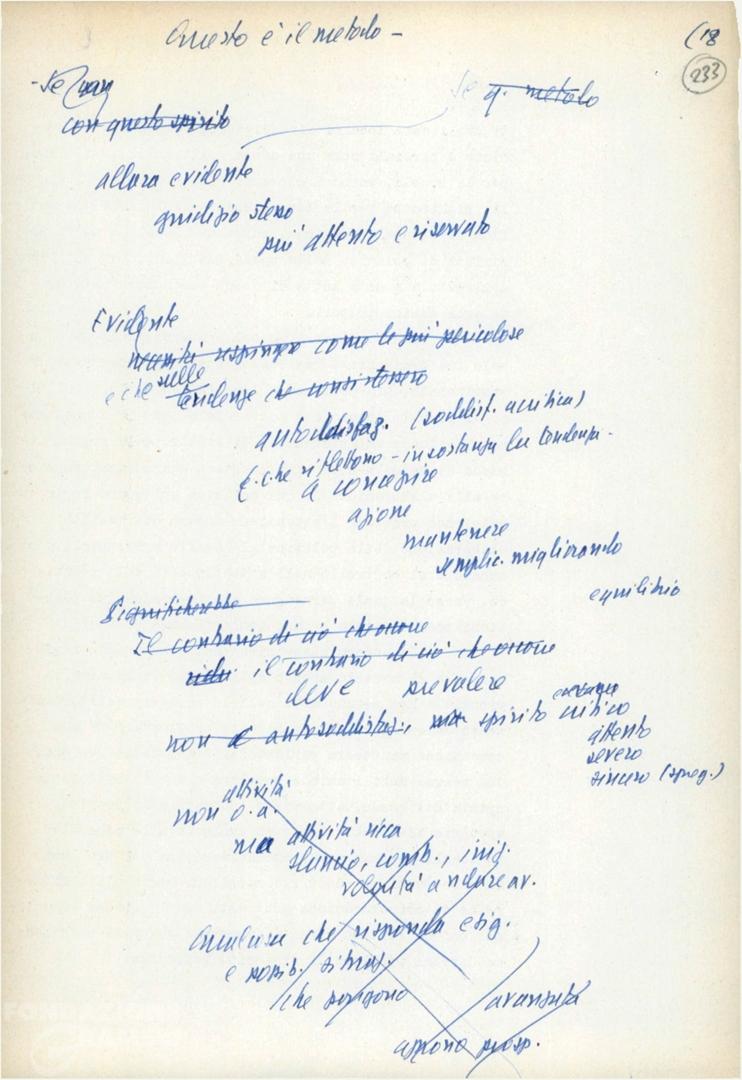 Questo è il metodo -
(18
233
- Se
Se q. metodo
con questo spirito
allora evidente
giudizio stesso
più attento e riservato
Evidente
necessità respingere come le più pericolose
e che sulle
tendenze che consistessero
autodisfaz. (soddisf. acritica)
e che riflettono - in sostanza la tendenza -
a concepire
azione
mantenere
semplic. migliorando
equilibrio
Significherebbe
Il contrario di ciò che occorre
il contrario di ciò che occorre
deve prevalere
non autosoddisfaz., ma spirito critico
attento
severo
sincero (spreg.)
attività
non o.a.
ma attività ricca
slancio, comb., iniz.
volontà andare av.
Qualcosa che risponda esig.
e possib. situaz.
che sorgono
avanzata
aprono prosp.